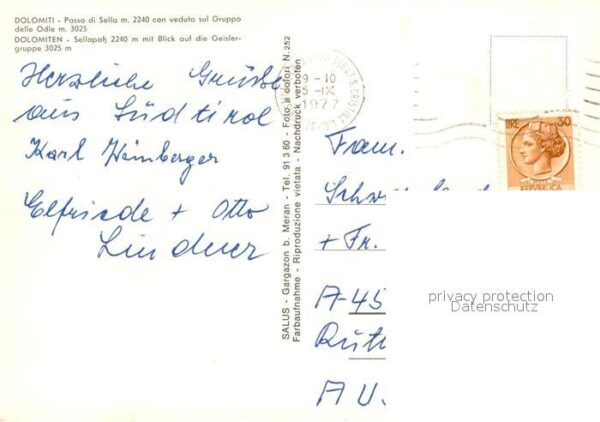 DOLOMITI - Passo di Sella m. 2240 con veduta sul Gruppo
delle Odle m. 3025
DOLOMITEN - Sellapaß 2240 m mit Blick auf die Geisler-
gruppe 3025 m
Herzliche Grüße
aus Südtirol
Karl
Elfriede + Otto
SALUS - Gargazon b. Meran - Tel. 91 3 60 - Foto a colori N. 252
Farbaufnahme - Riproduzione vietata - Nachdruck verboten
9-10
IX
1977
LIRE 30
REPVBBLICA
Fam.
+ Fr.
A-45
A U.
privacy protection
Datenschutz